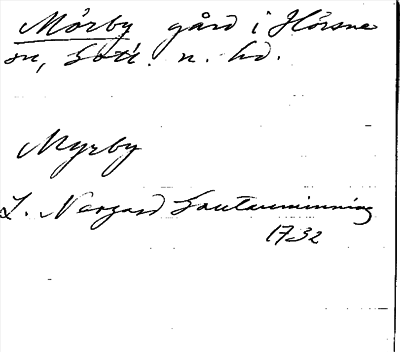 Mörby gård i Hörsne
sn, Gotl. n. hd.
Myrby
L. Norgard Gautauminning
1732